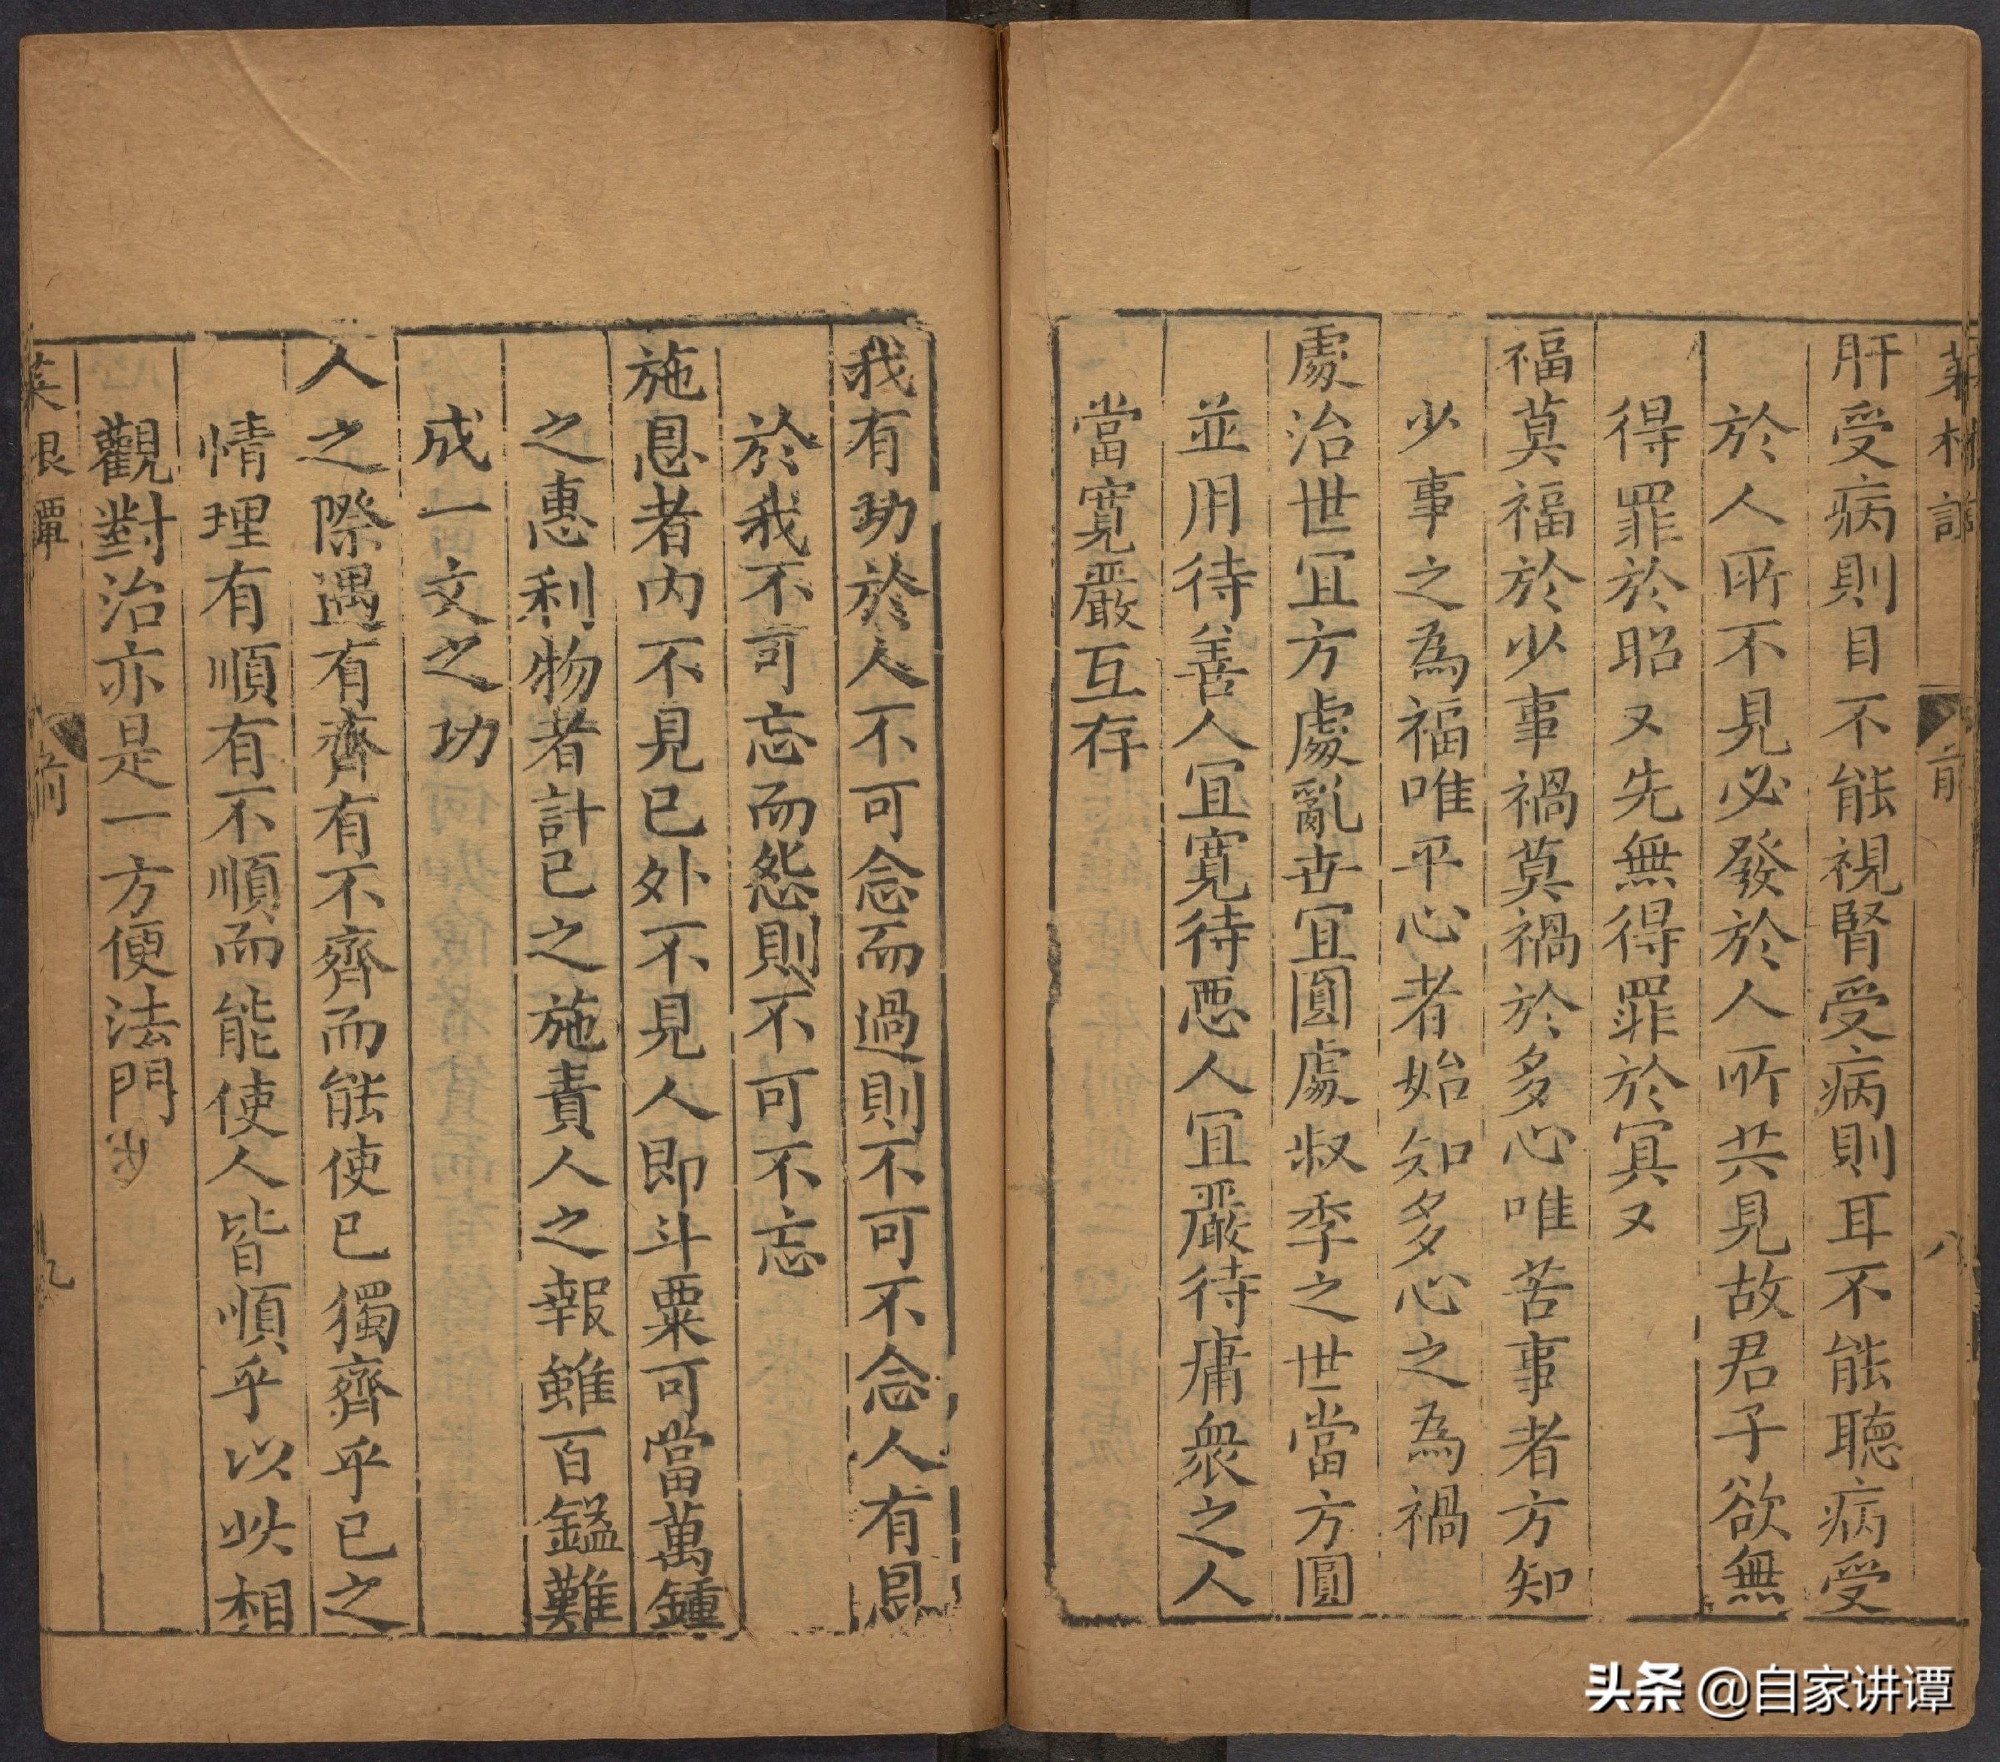 菜根譚
前
八
肝受病則目不能視腎受病則耳不能聽病受
於人所不見必發於人所共見故君子欲無
得罪於昭又先無得罪於冥又
福莫福於少事禍莫禍於多心唯苦事者方知
少事之為福唯平心者始知多心之為禍
處治世宜方處亂世宜圓處叔季之世當方圓
並用待善人宜寬待惡人宜嚴待庸衆之人
當寬嚴互存
我有功於人不可念而過則不可不念人有恩
於我不可忘而怨則不可不忘
施恩者內不見已外不見人即斗粟可當萬鍾
之惠利物者計已之施責人之報雖百鎰難
成一文之功
人之際遇有齊有不齊而能使已獨齊乎已之
情理有順有不順而能使人皆順乎以此相
觀對治亦是一方便法門
菜根譚
前
九
头条 @自家讲谭